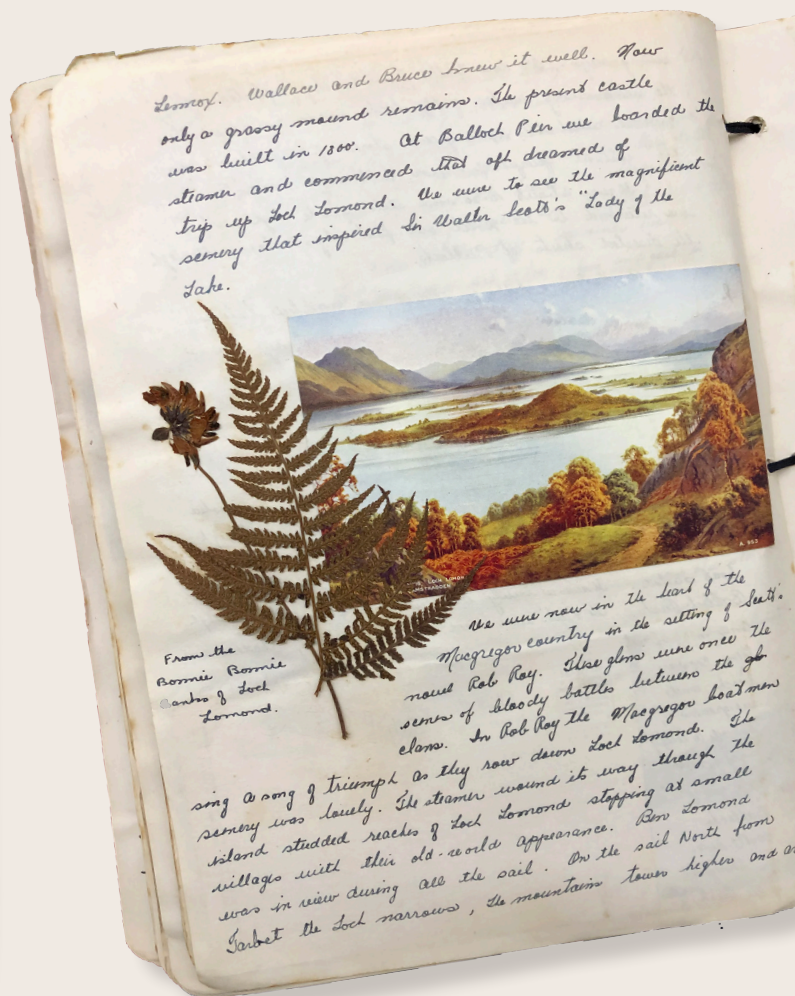 Lennox. Wallace and Bruce knew it well. Now
only a grassy mound remains. The present castle
was built in 1800. At Balloch Pier we boarded the
steamer and commenced that oft dreamed of
trip up Loch Lomond. We were to see the magnificent
scenery that inspired Sir Walter Scott's "Lady of the
Lake.
LOCH LOMON
A. 953
From the
Bonnie Bonnie
Banks of Loch
Lomond.
We were now in the heart of the
Macgregor country in the setting of Scott's
novel Rob Roy. These glens were once the
scenes of bloody battles between the
clans. In Rob Roy the Macgregor boatmen
sing a song of triumph as they row down Loch Lomond. The
scenery was lovely. The steamer wound its way through the
island studded reaches of Loch Lomond stopping at small
villages with their old-world appearance. Ben Lomond
was in view during all the sail. On the sail North from
Tarbet the Loch narrows, the mountains tower higher and